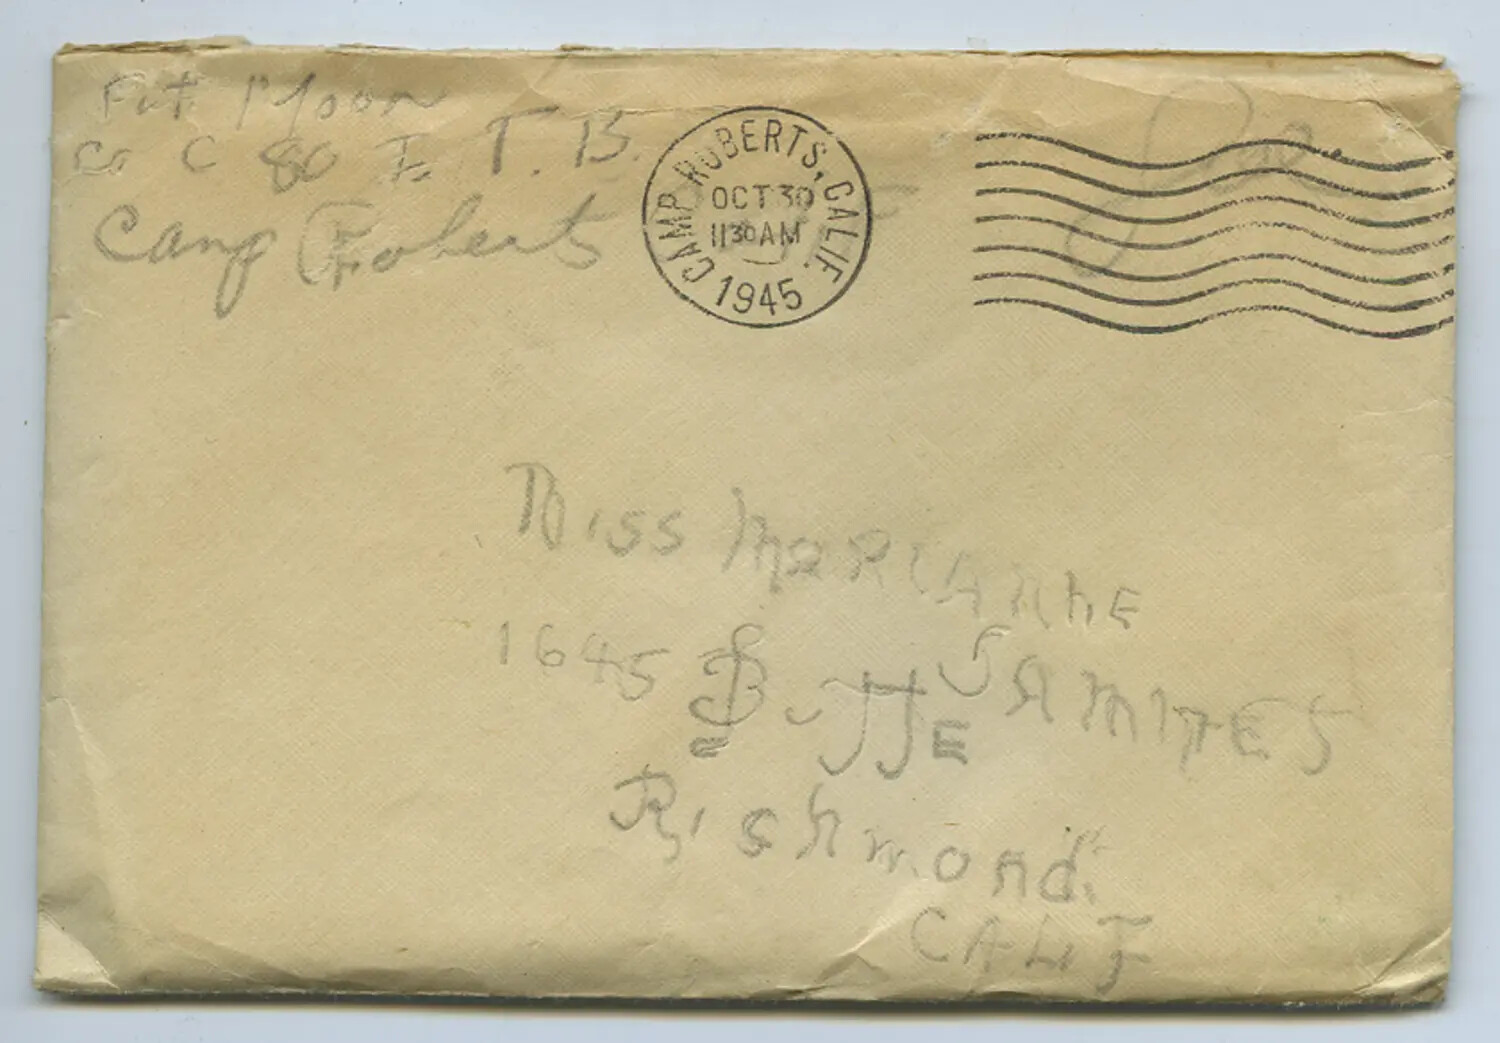 Pvt Moon
Co C 80 I. T. B.
Camp Roberts
Free
CAMP ROBERTS, CALIF.
OCT 30
1130 AM
1945
Miss MARIANNE
SAMMET
1645 BUTTE
Rishmond.
CALIF